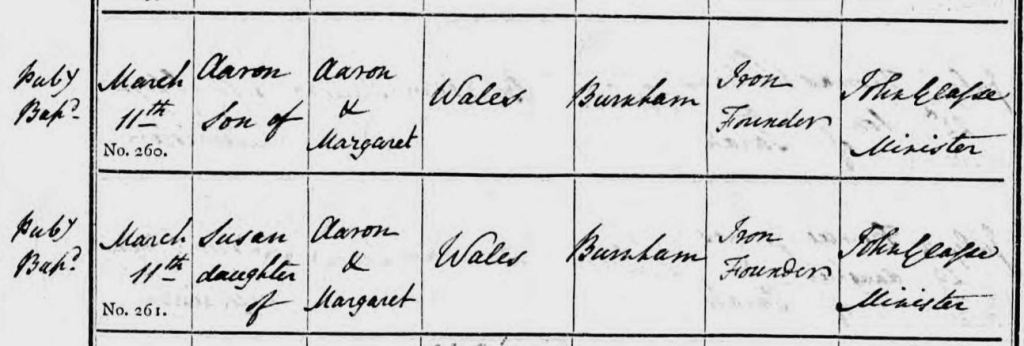 Pub.y
Bap.d
March
11th
No. 260.
Aaron
Son of
Aaron
&
Margaret
Wales
Burnham
Iron
Founder
John Glasse
Minister
Pub.y
Bap.d
March
11th
No. 261.
Susan
daughter
of
Aaron
&
Margaret
Wales
Burnham
Iron
Founder
John Glasse
Minister